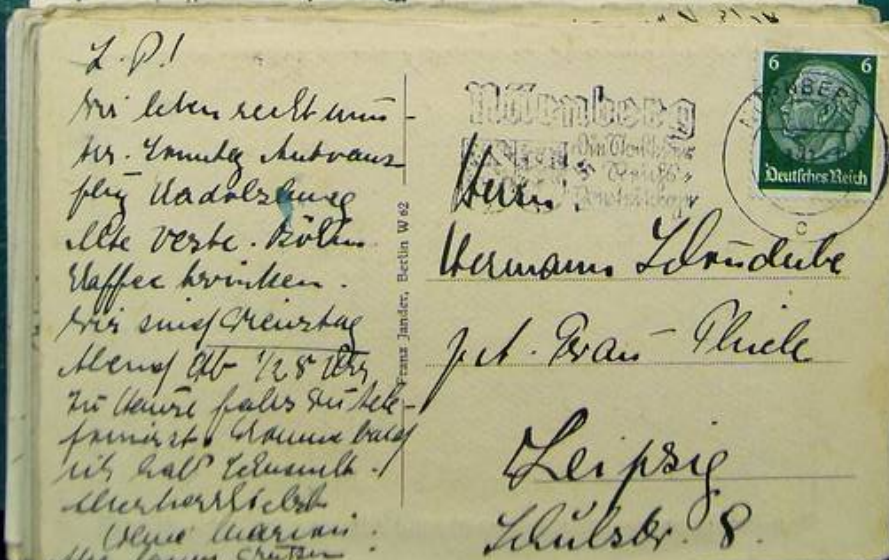 L. P.!
Wir leben recht mun-
ter. Sonntag Autoaus-
flug Kadolzburg
Alte Veste.
Kaffee trinken.
Wir sind Dienstag
Abend Ab 1/28 Uhr
zu Hause falls Du tele-
fonierst. Komme bald
ich hab Sehnsucht.
Allerherzlichst
Deine
Franz Jander, Berlin W 62
Nürnberg
Die Stadt der
Reichs-
NÜRNBERG
6 6
Deutsches Reich
Herrn
Hermann
p. A. Frau Thiele
Leipzig
Schulstr. 8.